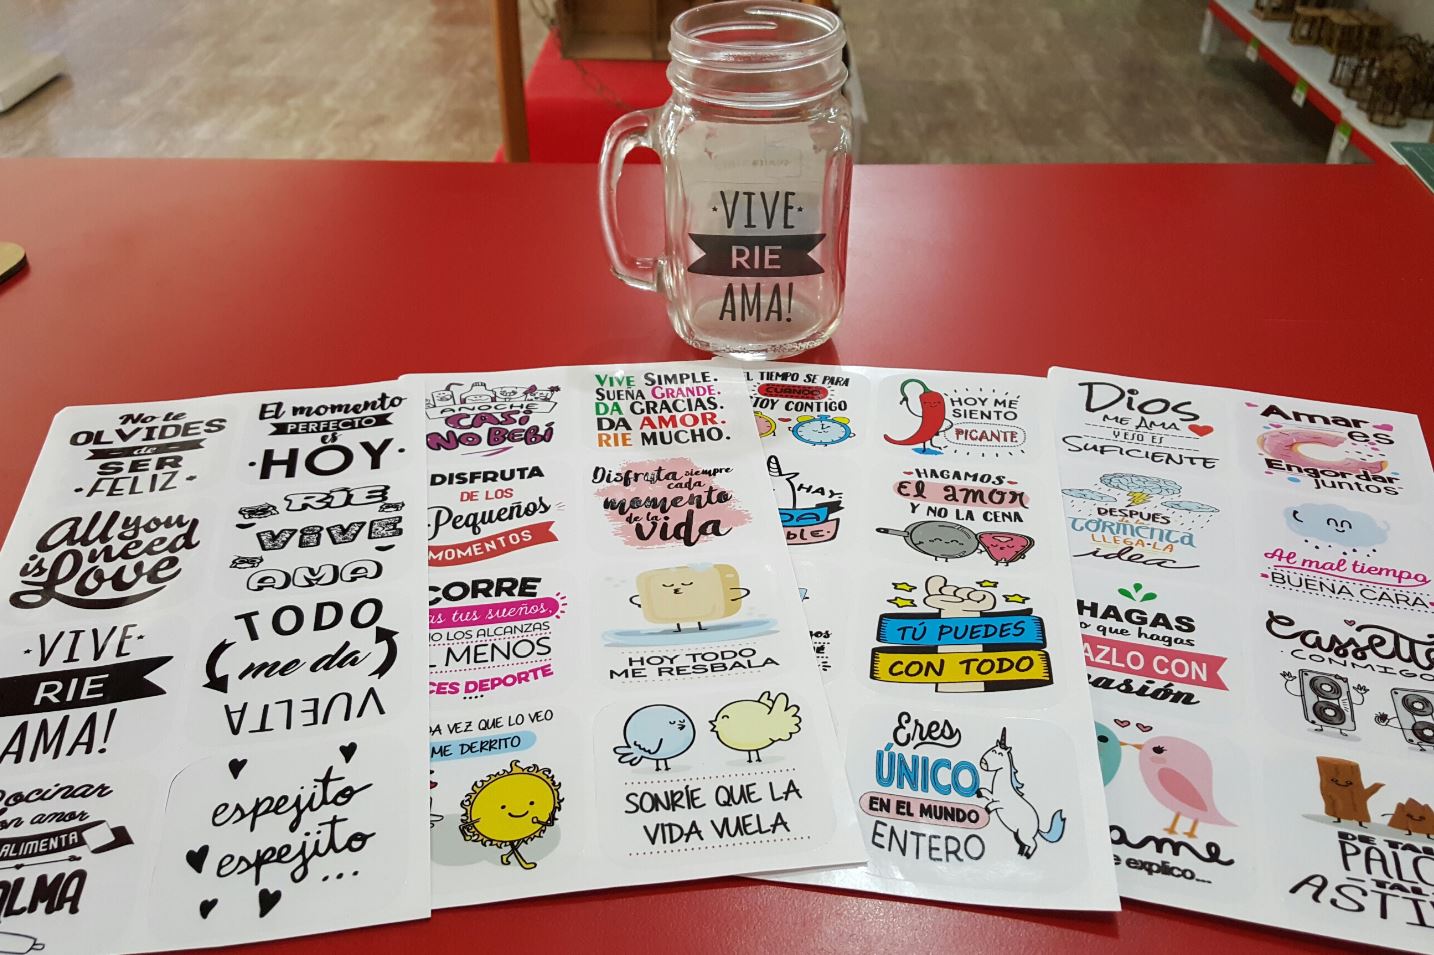 VIVE
RIE
AMA!
No te
OLVIDES
de
SER
FELIZ
El momento
PERFECTO
es
HOY
All you
need
is
Love
RÍE
VIVE
AMA
VIVE
RIE
AMA!
TODO
me da
VUELTA
Cocinar
con amor
ALIMENTA
ALMA
espejito
espejito...
ANOCHE
CASI
NO BEBÍ
VIVE SIMPLE.
SUEÑA GRANDE.
DA GRACIAS.
DA AMOR.
RIE MUCHO.
DISFRUTA
DE LOS
Pequeños
MOMENTOS
Disfruta siempre
cada
momento
de la
vida
CORRE
tus sueños,
NO LOS ALCANZAS
MENOS
DEPORTE
HOY TODO
ME RESBALA
VEZ QUE LO VEO
ME DERRITO
SONRÍE QUE LA
VIDA VUELA
EL TIEMPO SE PARA
CUANDO
CONTIGO
HOY ME
SIENTO
PICANTE
HAY
HAGAMOS
El amor
Y NO LA CENA
TÚ PUEDES
CON TODO
Eres
ÚNICO
EN EL MUNDO
ENTERO
Dios
ME AMA
Y ESO ES
SUFICIENTE
Amar
es
Engordar
juntos
DESPUÉS
de la
TORMENTA
LLEGA LA
idea
Al mal tiempo
BUENA CARA
HAGAS
lo que hagas
HAZLO CON
pasión
Cassette
CONMIGO
te explico...
DE TAL
TAL